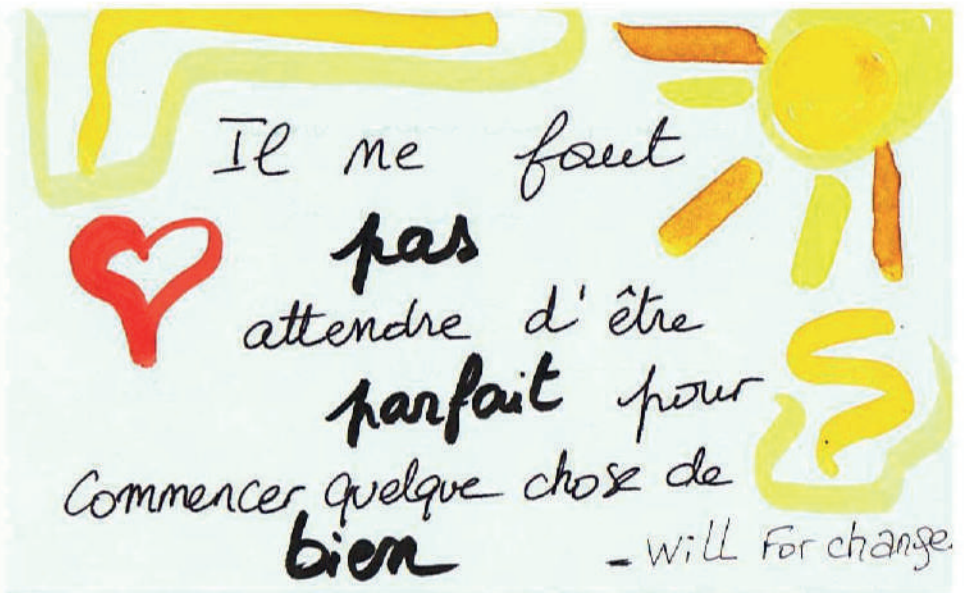 Il ne faut
pas
attendre d'être
parfait pour
Commencer quelque chose de
bien
- Will For change